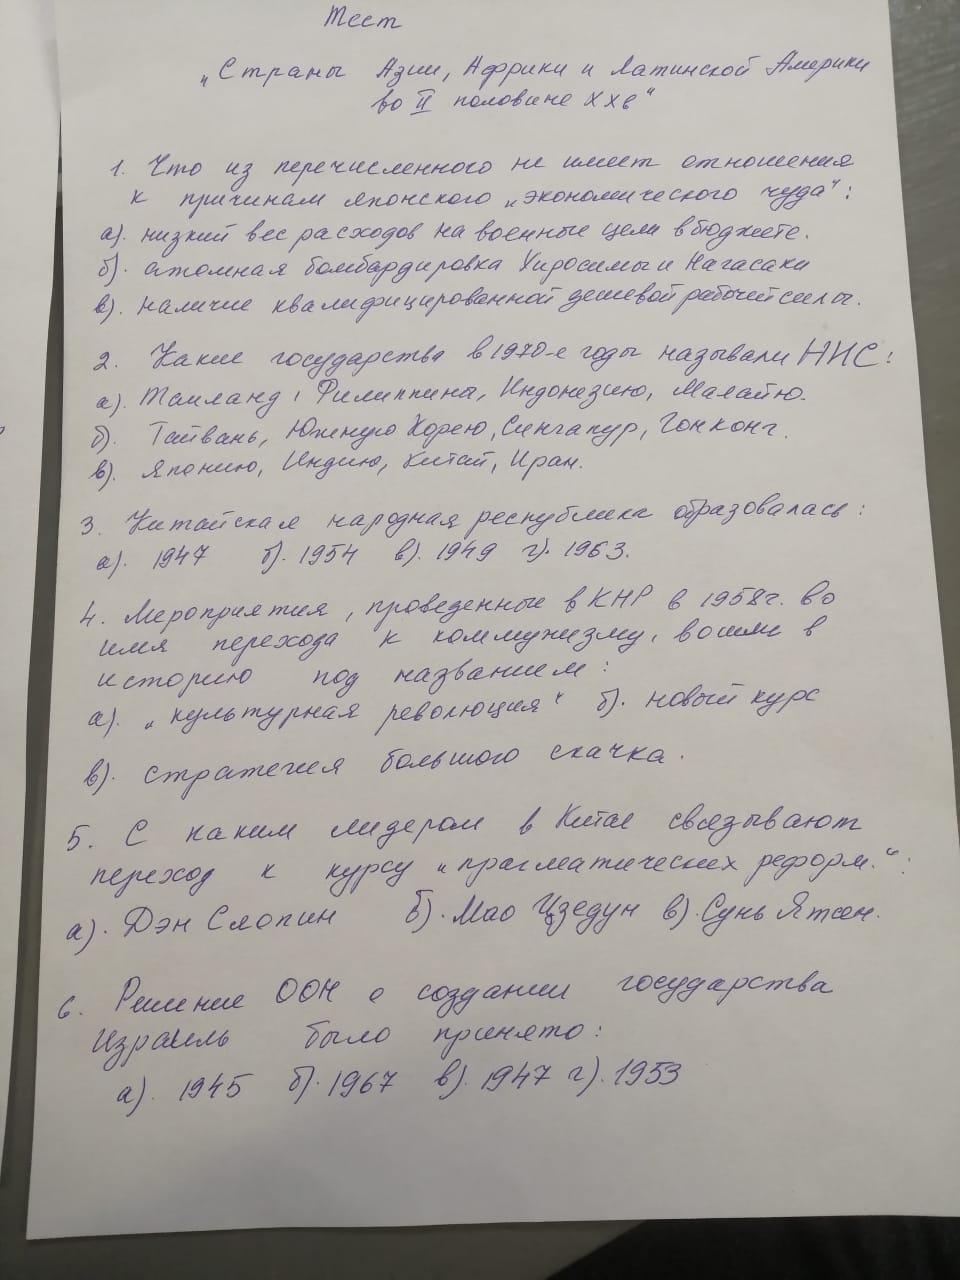 Тест
„Страны Азии, Африки и Латинской Америки
во II половине XXв"
1. Что из перечисленного не имеет отношения
к причинам японского „экономического чуда":
а). низкий вес расходов на военные цели в бюджете.
б). атомная бомбардировка Хиросимы и Нагасаки
в). наличие квалифицированной дешевой рабочей силы.
2. Какие государства в 1970-е годы называли НИС:
а). Таиланд, Филиппины, Индонезию, Малайю.
б). Тайвань, Южную Корею, Сингапур, Гонконг.
в). Японию, Индию, Китай, Иран.
3. Китайская народная республика образовалась:
а). 1947 б). 1954 в). 1949 г). 1963.
4. Мероприятия, проведенные в КНР в 1958г. во
имя перехода к коммунизму, вошли в
историю под названием:
а). „культурная революция" б). новый курс
в). стратегия большого скачка.
5. С каким лидером в Китае связывают
переход к курсу „прагматических реформ.":
а). Дэн Сяопин б). Мао Цзедун в). Сунь Ятсен.
6. Решение ООН о создании государства
Израиль было принято:
а). 1945 б). 1967 в). 1947 г). 1953